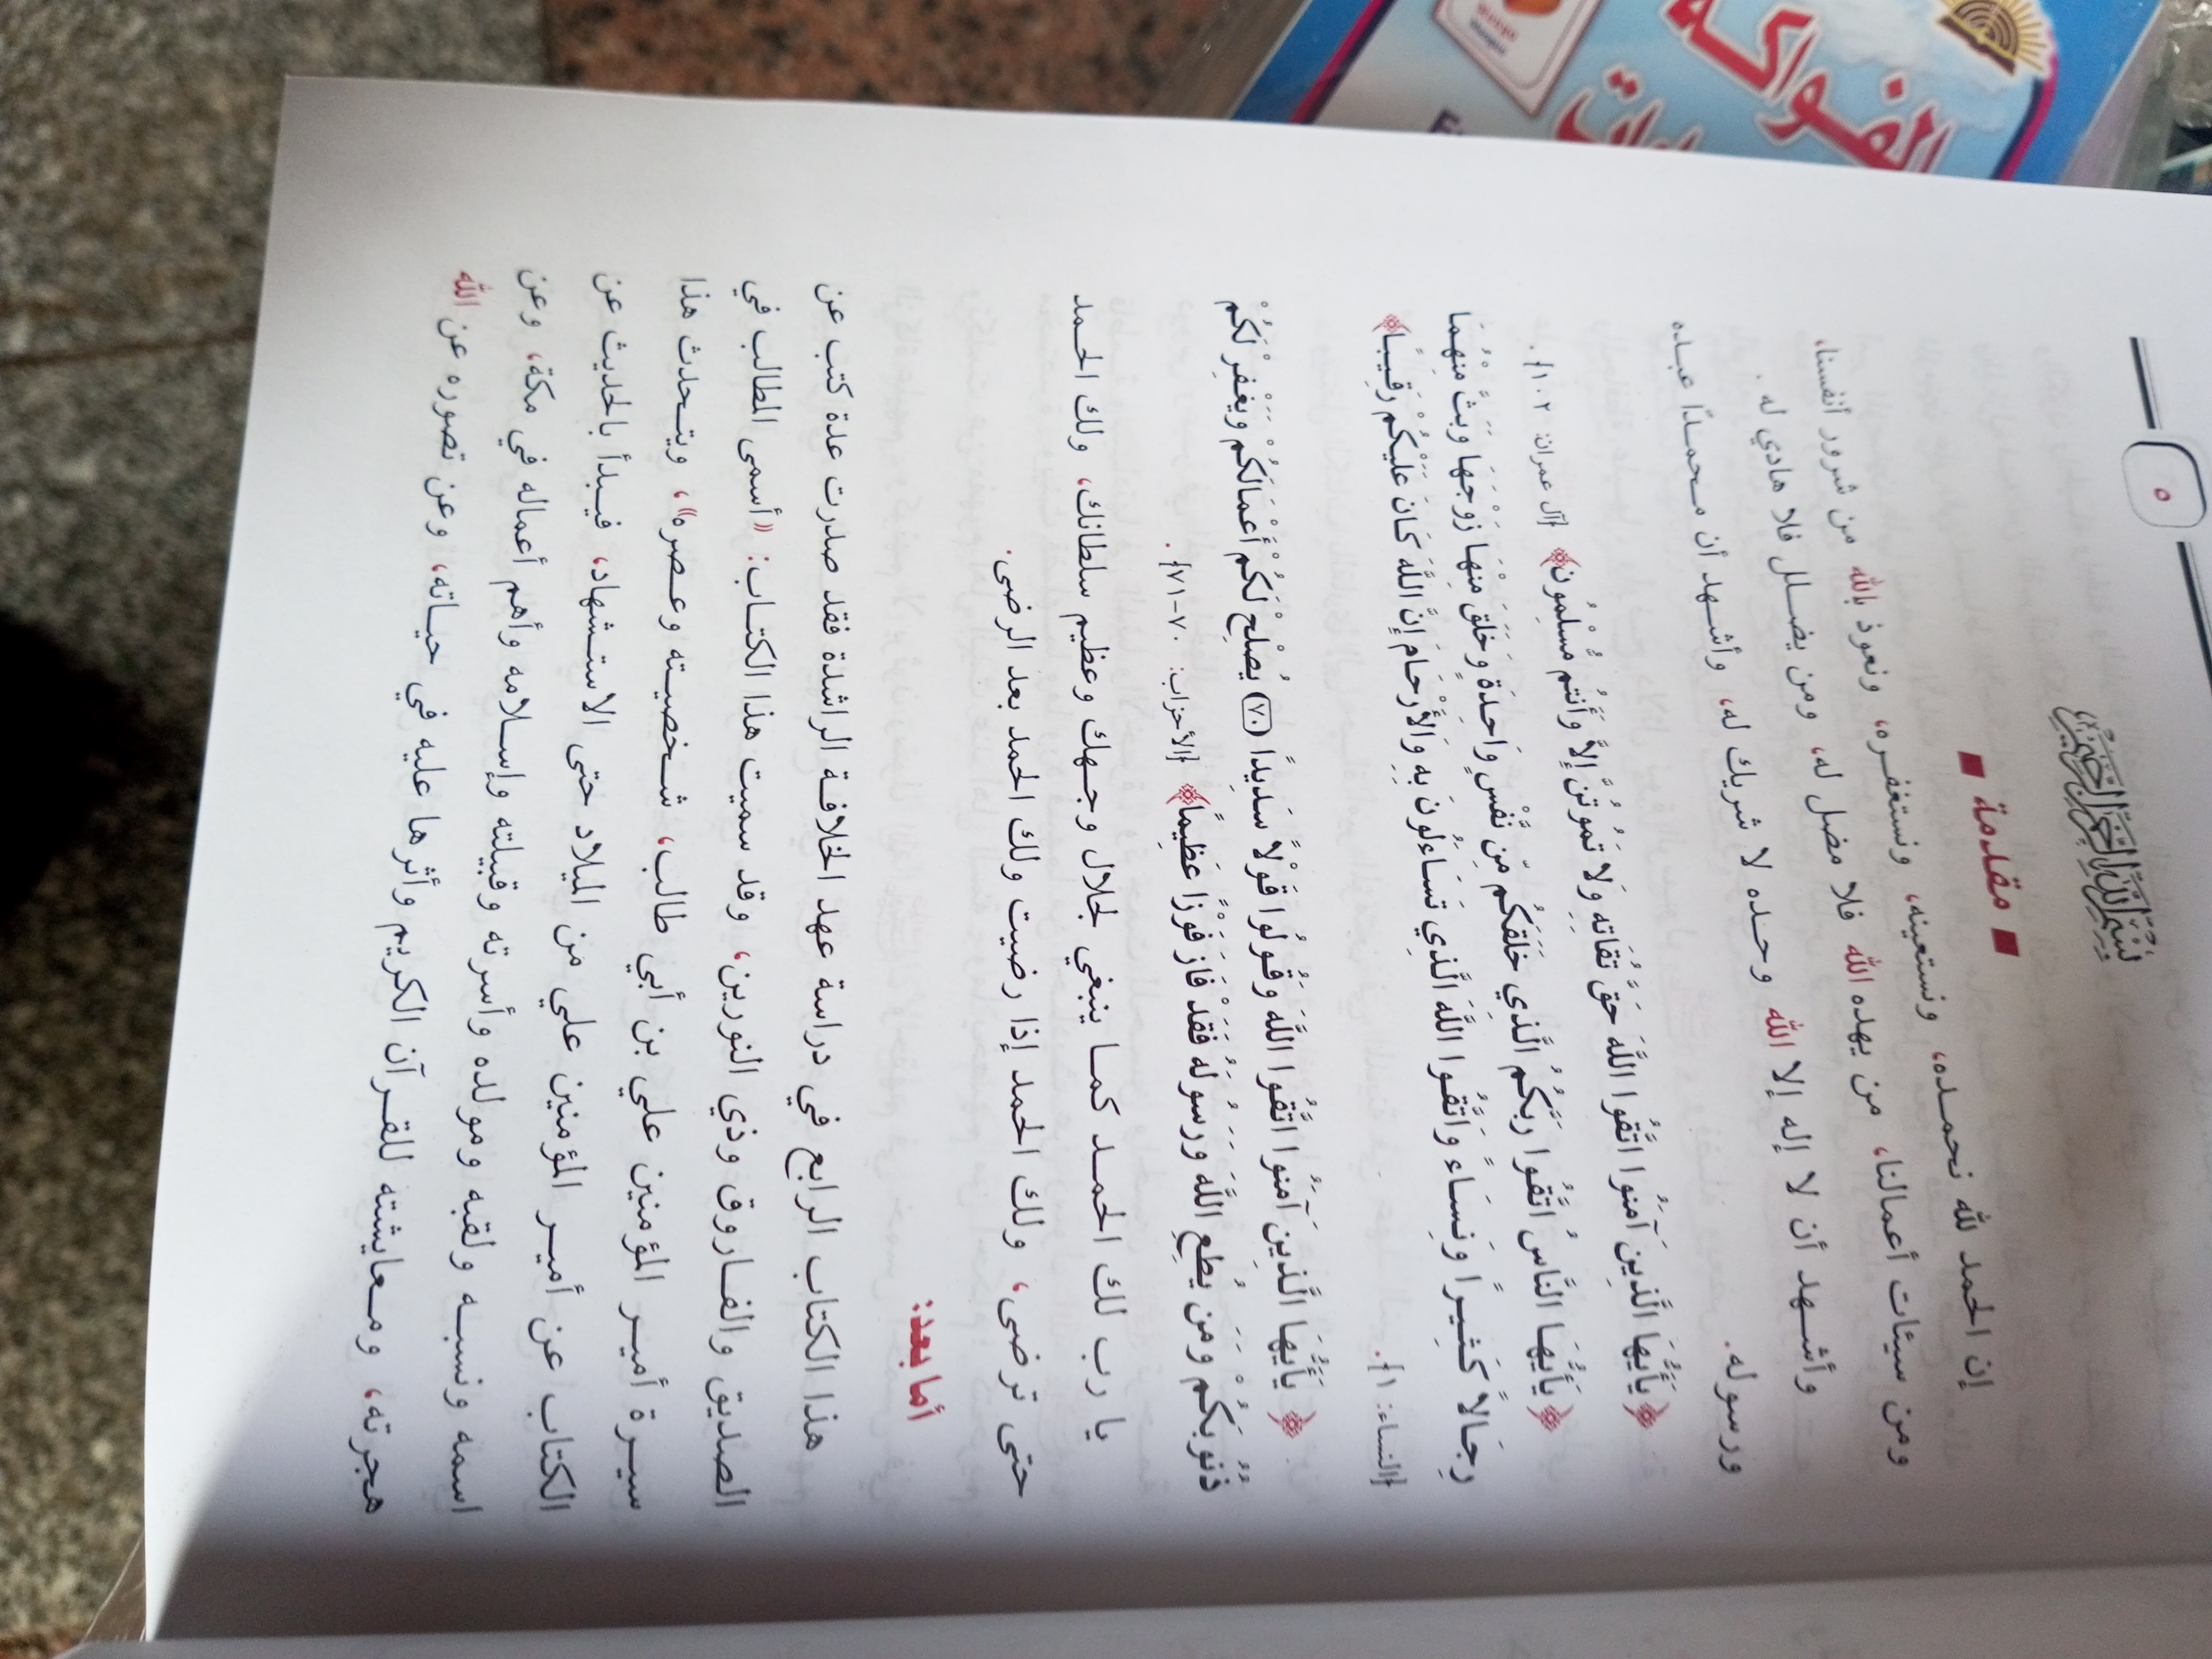 ٥
بسم الله الرحمن الرحيم
■ مقدمة ■
إن الحمد لله نحمده، ونستعينه، ونستغفره، ونعوذ بالله من شرور أنفسنا،
ومن سيئات أعمالنا، من يهده الله فلا مضل له، ومن يضلل فلا هادي له.
وأشهد أن لا إله إلا الله وحده لا شريك له، وأشهد أن محمدًا عبده
ورسوله.
﴿ يَأَيُّهَا الَّذِينَ آمَنُوا اتَّقُوا اللَّهَ حَقَّ تُقَاتِهِ وَلَا تَمُوتُنَّ إِلَّا وَأَنْتُم مُّسْلِمُونَ﴾ [آل عمران: ١٠٢].
﴿يَأَيُّهَا النَّاسُ اتَّقُوا رَبَّكُمُ الَّذِي خَلَقَكُم مِّن نَّفْسٍ وَاحِدَةٍ وَخَلَقَ مِنْهَا زَوْجَهَا وَبَثَّ مِنْهُمَا
رِجَالاً كَثِيرًا وَنِسَاءً وَاتَّقُوا اللَّهَ الَّذِي تَسَاءَلُونَ بِهِ وَالأَرْحَامَ إِنَّ اللَّهَ كَانَ عَلَيْكُمْ رَقِيبًا﴾
[النساء: ١].
﴿ يَأَيُّهَا الَّذِينَ آمَنُوا اتَّقُوا اللَّهَ وَقُولُوا قَوْلًا سَدِيدًا (٧٠) يُصْلِحْ لَكُمْ أَعْمَالَكُمْ وَيَغْفِرْ لَكُمْ
ذُنُوبَكُمْ وَمَن يُطِعِ اللَّهَ وَرَسُولَهُ فَقَدْ فَازَ فَوْزًا عَظِيمًا﴾ [الأحزاب: ٧٠-٧١].
يا رب لك الحمد كما ينبغي لجلال وجهك وعظيم سلطانك، ولك الحمد
حتى ترضى، ولك الحمد إذا رضيت ولك الحمد بعد الرضى.
أما بعد:
هذا الكتاب الرابع في دراسة عهد الخلافة الراشدة فقد صدرت عدة كتب عن
الصديق والفاروق وذي النورين، وقد سميت هذا الكتاب: «أسمى المطالب في
سيرة أمير المؤمنين علي بن أبي طالب، شخصيته وعصره»، ويتحدث هذا
الكتاب عن أمير المؤمنين علي من الميلاد حتى الاستشهاد، فيبدأ بالحديث عن
اسمه ونسبه ولقبه ومولده وأسرته وقبيلته وإسلامه وأهم أعماله في مكة، وعن
هجرته، ومعايشته للقرآن الكريم وأثرها عليه في حياته، وعن تصوره عن الله
الفواكه